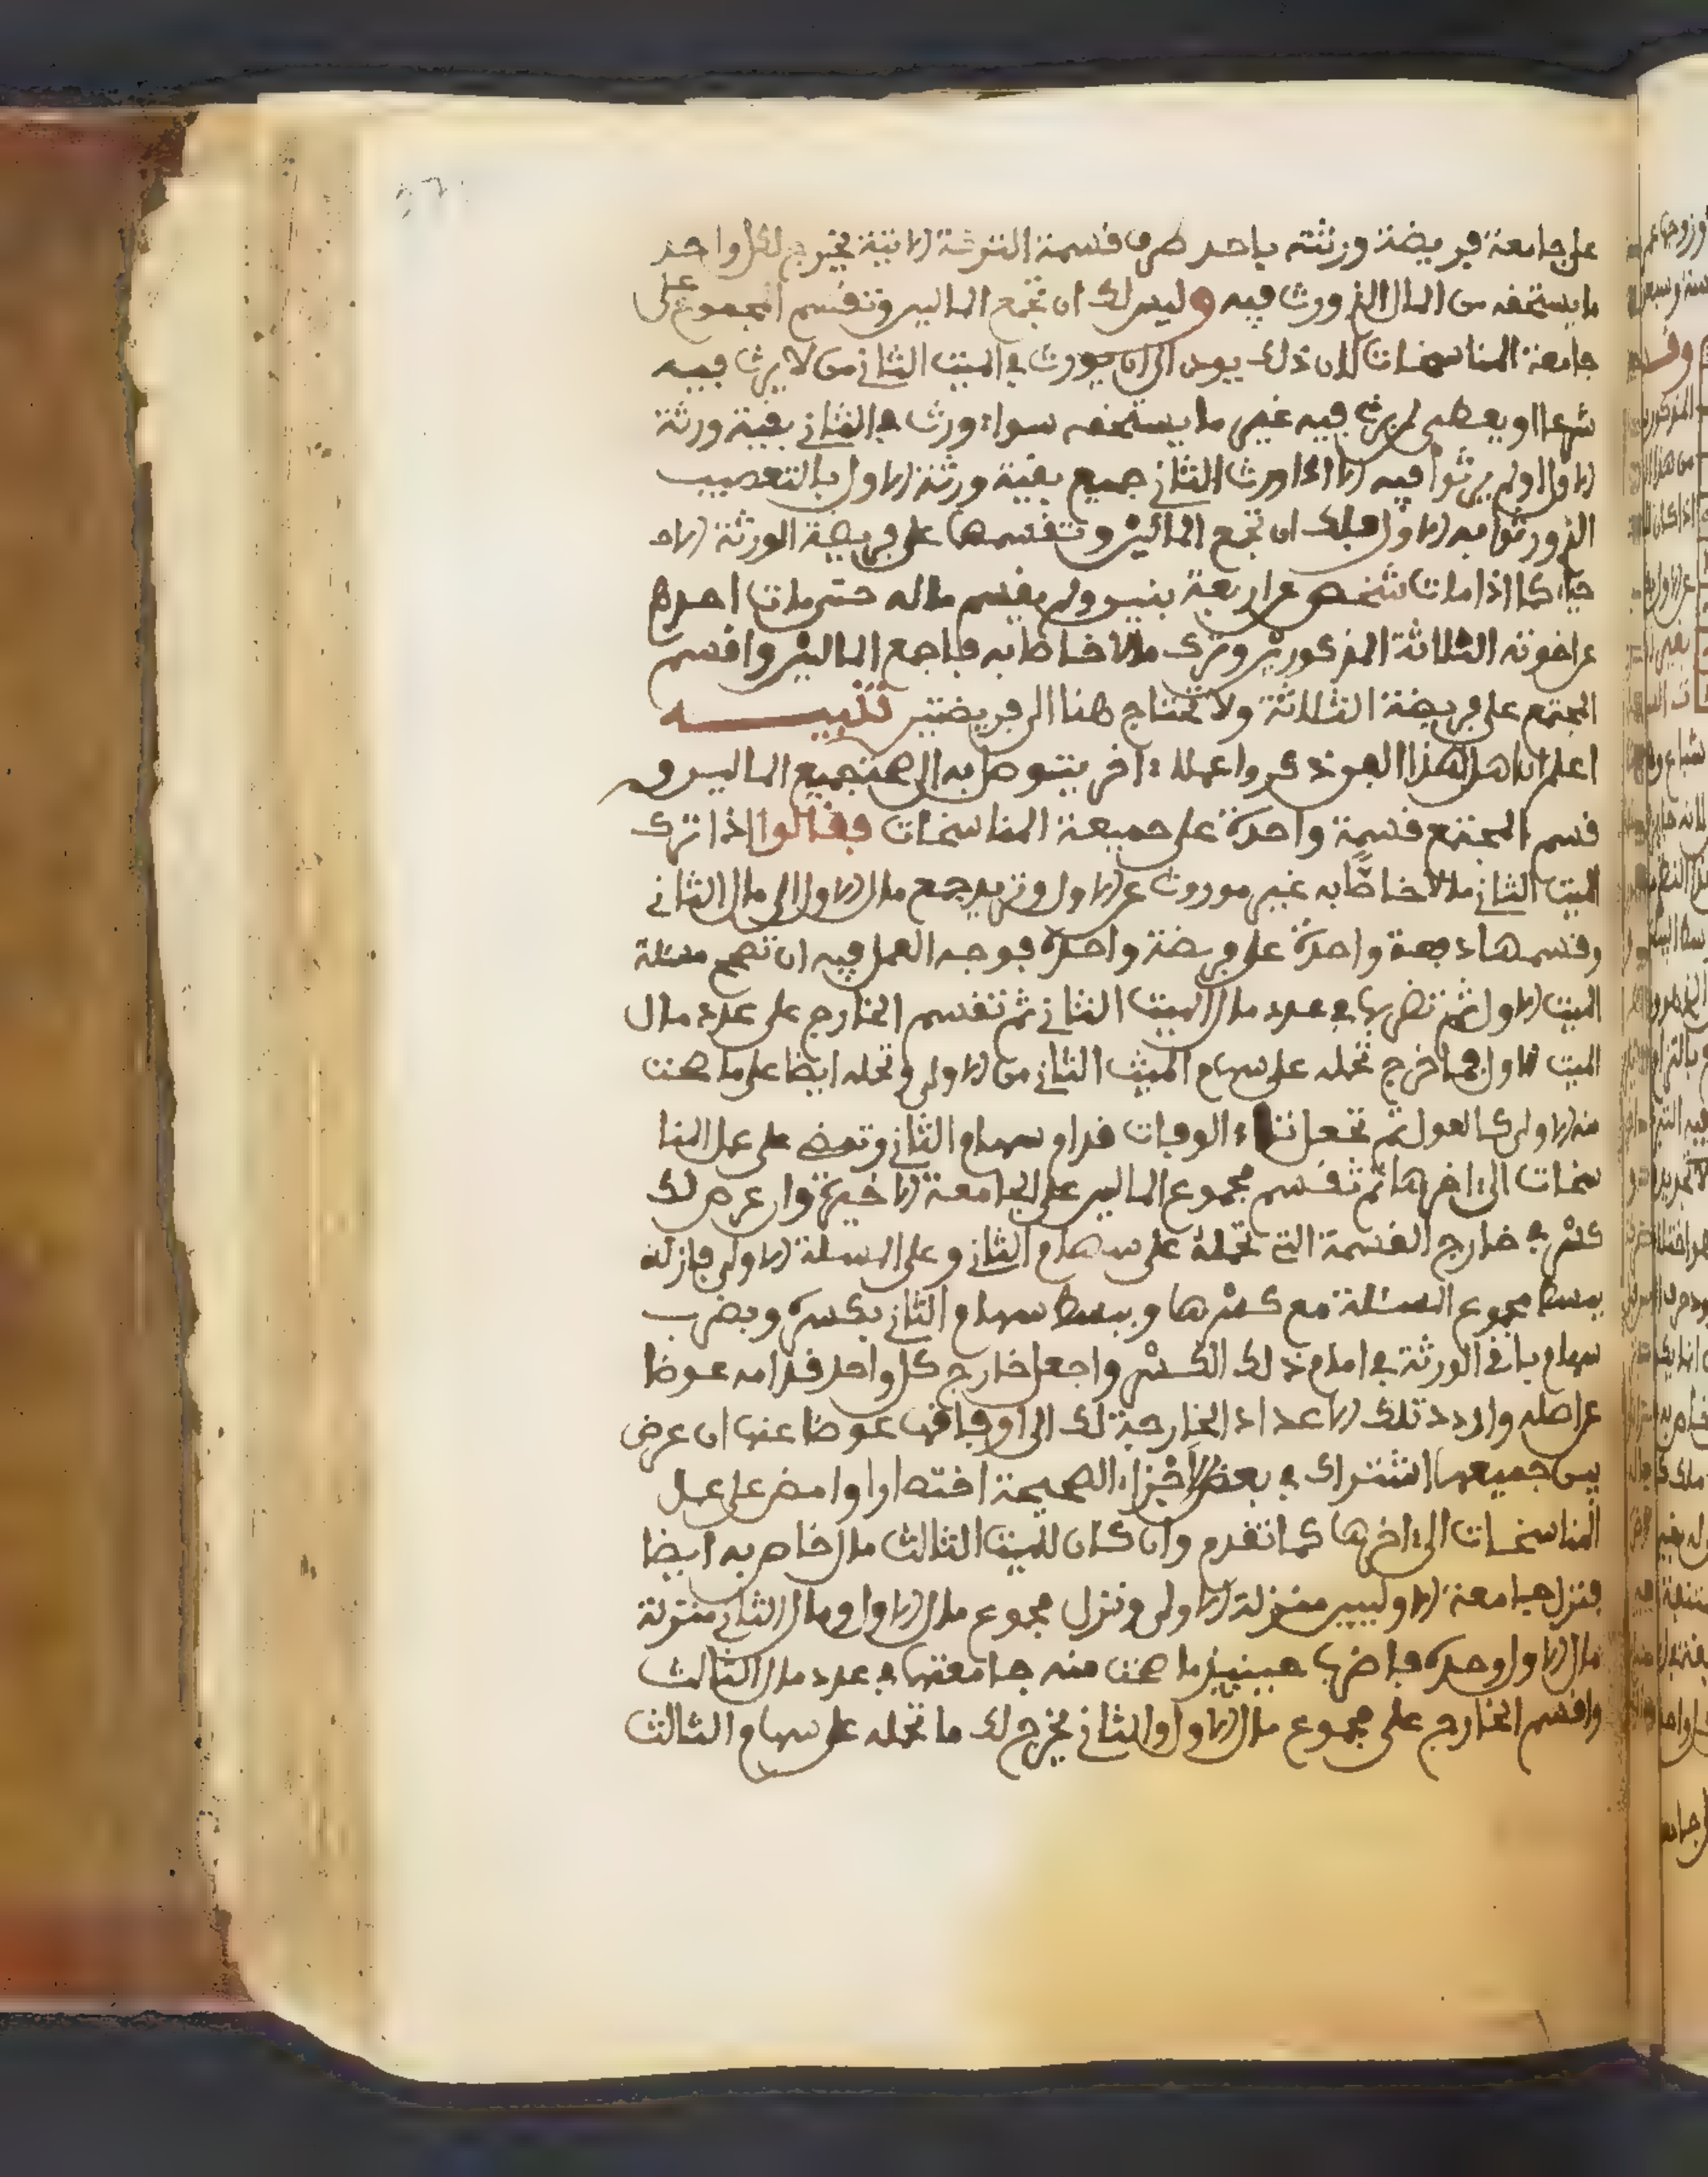 على جامعة فريضة ورثته باحد طرق قسمة التركة الاتية يخرج لكل واحد
ما يستحقه من المال الذي ورث فيه وليس لك ان تجمع المالين وتقسم المجموع على
جامعة المناسخات لان ذلك يودي الى ان يورث في الميت الثاني من لا يرث فيه
شرعا او يعطى لمن يرث فيه غير ما يستحقه سواء ورث في الثاني بقية ورثة
الاول او لم يرثوا فيه الا اذا ورث الثاني جميع بقية ورثة الاول بالتعصيب
الذي ورثوا به الاول فلك ان تجمع المالين وتقسمها على فريضة الورثة الاحـ
ياء كما اذا مات شخص عن اربعة بنين ولم يقسم ماله حتى مات احدهم
عن اخوته الثلاثة المذكورين وترك مالا خاصا به فاجمع المالين واقسم
المجتمع على فريضة الثلاثة ولا تحتاج هنا الى فريضتين تنبيـــــه
اعلم ان اهل هذا الفن ذكروا عملا ءاخر يتوصل به الى جميع المالين و
قسم المجتمع قسمة واحدة على جميعة المناسخات فقالوا اذا ترك
الميت الثاني مالا خاصا به غير موروث عن الاول وتريد جمع مال الاول الى مال الثاني
وقسمها دفعة واحدة على فريضة واحدة فوجه العمل فيه ان تصحح مسئلة
الميت الاول ثم تضربها في عدد مال الميت الثاني ثم تقسم الخارج على عدد مال
الميت الاول فما خرج تحمله على سهام الميت الثاني من الاولى وتحمله ايضا على ما صحت
منه الاولى كالعول ثم تجعل تاء الوفات قدام سهام الثاني وتمضي على عمل المنا
سخات الى ءاخرها ثم تقسم مجموع المالين على الجامعة الاخيرة وان عرض لك
كسر في خارج القسمة التي تحمله على سهام الثاني وعلى المسئلة الاولى فانك
تبسط مجموع المسئلة مع كسرها وتبسط سهام الثاني بكسره وتضرب
سهام باقي الورثة في امام ذلك الكسر واجعل خارج كل واحد قدامه عوضا
عن اصله واردد تلك الاعداد الخارجة لك الى اوفاقها عوضا عنها ان عرض
بين جميعها اشتراك في بعض الاجزاء الصحيحة اختصارا وامض على عمل
المناسخات الى ءاخرها كما تقدم وان كان للميت الثالث مال خاص به ايضا
فتنزل جامعة الاوليين منزلة الاولى وتنزل مجموع مال الاول ومال الثاني منزلة
مال الاول وحده فاضرب حينئذ ما صحت منه جامعتها في عدد مال الثالث
واقسم الخارج على مجموع مال الاول والثاني يخرج لك ما تحمله على سهام الثالث